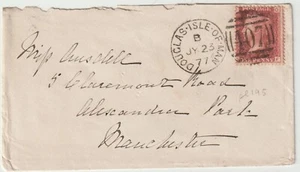 DOUGLAS · ISLE · OF · MAN
B
JY 23
77
407
Miss Ansdell
5 Claremont Road
Alexandra Park
Manchester